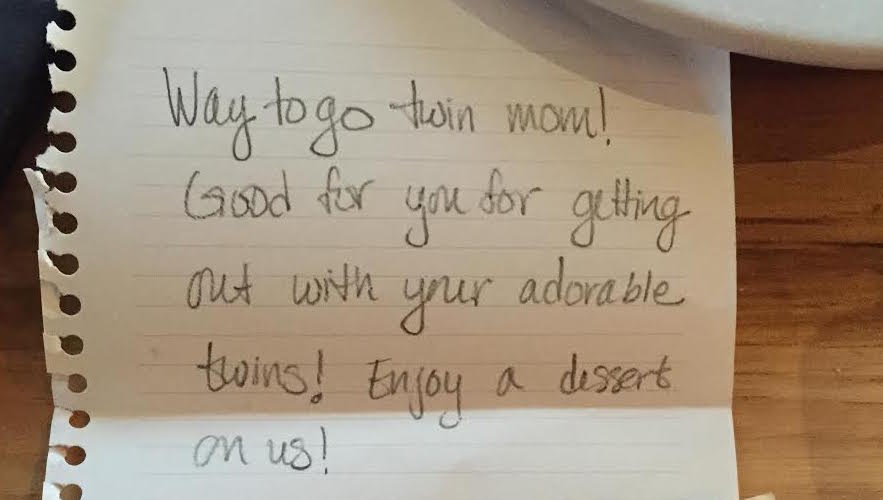 Way to go twin mom!
Good for you for getting
out with your adorable
twins! Enjoy a dessert
on us!